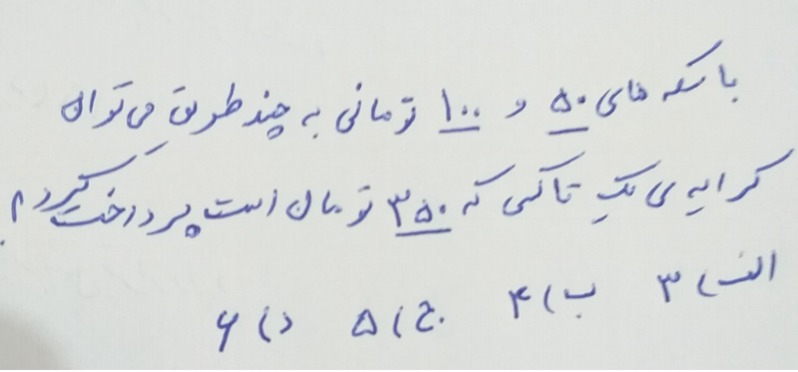 با سکه های ۵۰ و ۱۰۰ تومانی به چند طریق می توان
کرایه ی یک تاکسی که ۳۵۰ تومان است پرداخت کرد؟
الف) ۳ ب) ۴ ج) ۵ د) ۶